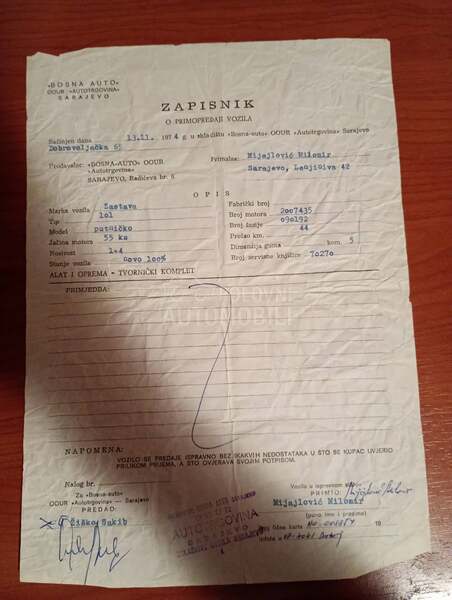 »BOSNA AUTO«
OOUR »AUTOTRGOVINA«
SARAJEVO
ZAPISNIK
O PRIMOPREDAJI VOZILA
Sačinjen dana 13.11. 1974 g u skladištu »Bosna-auto« OOUR »Autotrgovina« Sarajevo
Dobrovoljačka 65
Prodavalac: »BOSNA-AUTO« OOUR
»Autotrgovina«
SARAJEVO, Radićeva br. 8
Primalac: Mijajlović Milomir
Sarajevo, 42
OPIS
Marka vozila Zastava
Tip 101
Model putničko
Jačina motora 55 ks
Nosivost 1+4
Stanje vozila novo 100%
Fabrički broj
Broj motora 2007435
Broj šasije 090192
Prešao km. 44
Dimenzija guma kom. 5
Broj servisne knjižice 70270
ALAT I OPREMA - TVORNIČKI KOMPLET
PRIMJEDBA:
AUTOMOBILI
NAPOMENA:
VOZILO SE PREDAJE ISPRAVNO BEZ IKAKVIH NEDOSTATAKA U ŠTO SE KUPAC UVJERIO
PRILIKOM PRIJEMA, A ŠTO OVJERAVA SVOJIM POTPISOM.
Nalog br.
Za »Bosna-auto«
OOUR »AUTOTRGOVINA« — Sarajevo
PREDAO:
Čiško Sakib
AUTOTRGOVINA
SARAJEVO
Vozilo u ispravnom stanju
PRIMIO:
Mijajlović Milomir
(puno ime i prezime)
Broj lične karte